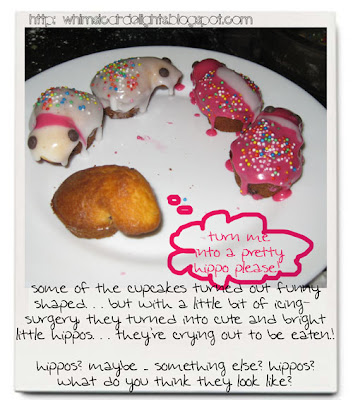 http: whimsicardelights.blogspot.com
turn me
into a pretty
hippo please!
some of the cupcakes turned out funny
shaped... but with a little bit of icing-
surgery they turned into cute and bright
little hippos... they're crying out to be eaten!
hippos? maybe - something else? hippos?
what do you think they look like?